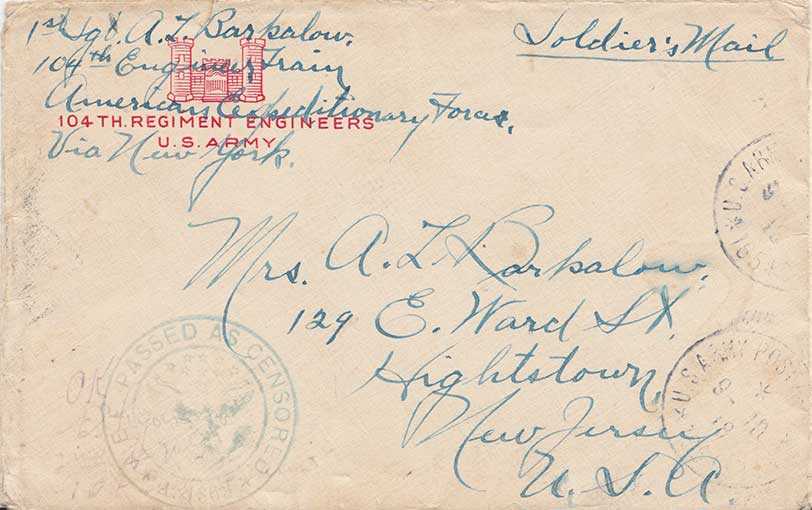 1st Sgt. A. L. Barkalow.
104th Engineer Train
American Expeditionary Forces,
Via New York.
104TH. REGIMENT ENGINEERS
U.S. ARMY
Soldier's Mail
Mrs. A. L. Barkalow.
129 E. Ward St.
Hightstown,
New Jersey
U.S.A.
PASSED AS CENSORED
U.S. ARMY POST
U.S. ARM